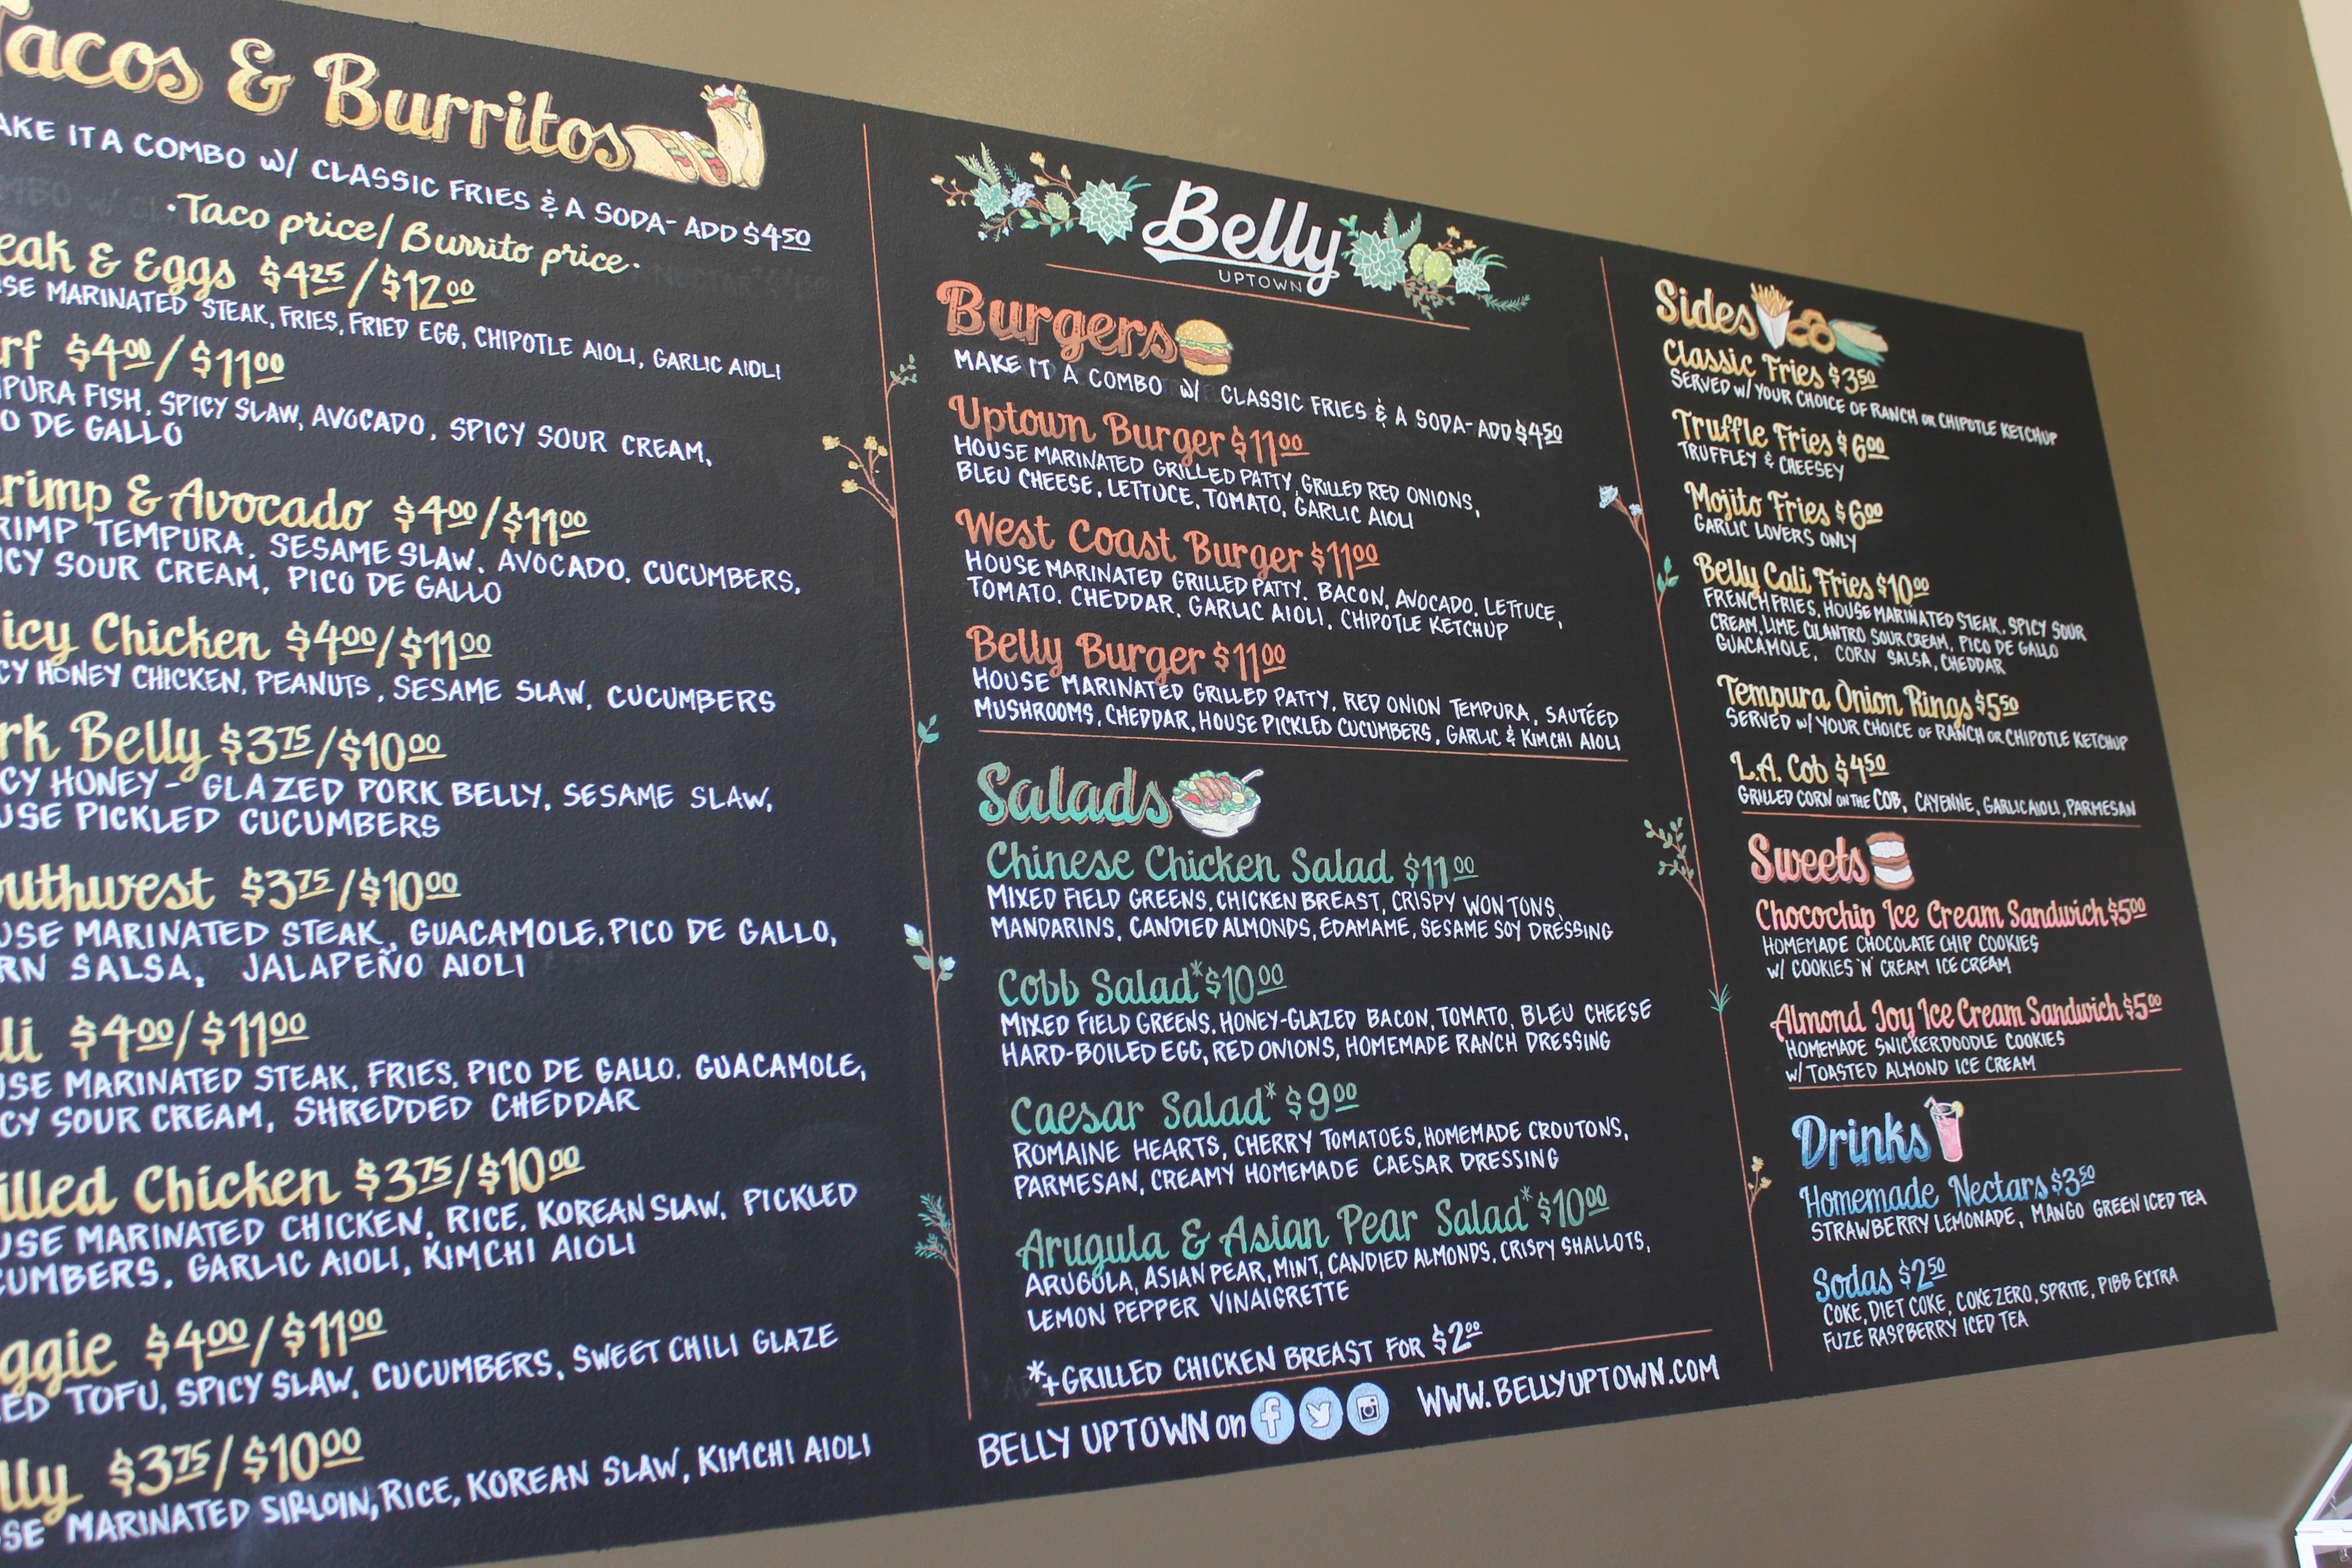 Tacos & Burritos
MAKE IT A COMBO w/ CLASSIC FRIES & A SODA- ADD $4.50
·Taco price/Burrito price·
eak & Eggs $4.25/$12.00
SE MARINATED STEAK, FRIES, FRIED EGG, CHIPOTLE AIOLI, GARLIC AIOLI
rf $4.00/$11.00
PURA FISH, SPICY SLAW, AVOCADO, SPICY SOUR CREAM,
O DE GALLO
rimp & Avocado $4.00/$11.00
RIMP TEMPURA, SESAME SLAW, AVOCADO, CUCUMBERS,
ICY SOUR CREAM, PICO DE GALLO
icy Chicken $4.00/$11.00
CY HONEY CHICKEN, PEANUTS, SESAME SLAW, CUCUMBERS
rk Belly $3.75/$10.00
CY HONEY- GLAZED PORK BELLY, SESAME SLAW,
USE PICKLED CUCUMBERS
outhwest $3.75/$10.00
USE MARINATED STEAK, GUACAMOLE, PICO DE GALLO,
RN SALSA, JALAPEÑO AIOLI
li $4.00/$11.00
USE MARINATED STEAK, FRIES, PICO DE GALLO, GUACAMOLE,
CY SOUR CREAM, SHREDDED CHEDDAR
illed Chicken $3.75/$10.00
USE MARINATED CHICKEN, RICE, KOREAN SLAW, PICKLED
CUMBERS, GARLIC AIOLI, KIMCHI AIOLI
ggie $4.00/$11.00
ED TOFU, SPICY SLAW, CUCUMBERS, SWEET CHILI GLAZE
lly $3.75/$10.00
SE MARINATED SIRLOIN, RICE, KOREAN SLAW, KIMCHI AIOLI
Belly
UPTOWN
Burgers
MAKE IT A COMBO w/ CLASSIC FRIES & A SODA- ADD $4.50
Uptown Burger $11.00
HOUSE MARINATED GRILLED PATTY, GRILLED RED ONIONS,
BLEU CHEESE, LETTUCE, TOMATO, GARLIC AIOLI
West Coast Burger $11.00
HOUSE MARINATED GRILLED PATTY, BACON, AVOCADO, LETTUCE,
TOMATO, CHEDDAR, GARLIC AIOLI, CHIPOTLE KETCHUP
Belly Burger $11.00
HOUSE MARINATED GRILLED PATTY, RED ONION TEMPURA, SAUTÉED
MUSHROOMS, CHEDDAR, HOUSE PICKLED CUCUMBERS, GARLIC & KIMCHI AIOLI
Salads
Chinese Chicken Salad $11.00
MIXED FIELD GREENS, CHICKEN BREAST, CRISPY WONTONS,
MANDARINS, CANDIED ALMONDS, EDAMAME, SESAME SOY DRESSING
Cobb Salad* $10.00
MIXED FIELD GREENS, HONEY-GLAZED BACON, TOMATO, BLEU CHEESE
HARD-BOILED EGG, RED ONIONS, HOMEMADE RANCH DRESSING
Caesar Salad* $9.00
ROMAINE HEARTS, CHERRY TOMATOES, HOMEMADE CROUTONS,
PARMESAN, CREAMY HOMEMADE CAESAR DRESSING
Arugula & Asian Pear Salad* $10.00
ARUGULA, ASIAN PEAR, MINT, CANDIED ALMONDS, CRISPY SHALLOTS,
LEMON PEPPER VINAIGRETTE
*+GRILLED CHICKEN BREAST FOR $2.00
BELLY UPTOWN on WWW.BELLYUPTOWN.COM
Sides
Classic Fries $3.50
SERVED w/ YOUR CHOICE OF RANCH OR CHIPOTLE KETCHUP
Truffle Fries $6.00
TRUFFLEY & CHEESEY
Mojito Fries $6.00
GARLIC LOVERS ONLY
Belly Cali Fries $10.00
FRENCH FRIES, HOUSE MARINATED STEAK, SPICY SOUR
CREAM, LIME CILANTRO SOUR CREAM, PICO DE GALLO
GUACAMOLE, CORN SALSA, CHEDDAR
Tempura Onion Rings $5.50
SERVED w/ YOUR CHOICE OF RANCH OR CHIPOTLE KETCHUP
L.A. Cob $4.50
GRILLED CORN ON THE COB, CAYENNE, GARLIC AIOLI, PARMESAN
Sweets
Chocochip Ice Cream Sandwich $5.00
HOMEMADE CHOCOLATE CHIP COOKIES
w/ COOKIES 'N' CREAM ICE CREAM
Almond Joy Ice Cream Sandwich $5.00
HOMEMADE SNICKERDOODLE COOKIES
w/ TOASTED ALMOND ICE CREAM
Drinks
Homemade Nectars $3.50
STRAWBERRY LEMONADE, MANGO GREEN ICED TEA
Sodas $2.50
COKE, DIET COKE, COKE ZERO, SPRITE, PIBB EXTRA
FUZE RASPBERRY ICED TEA